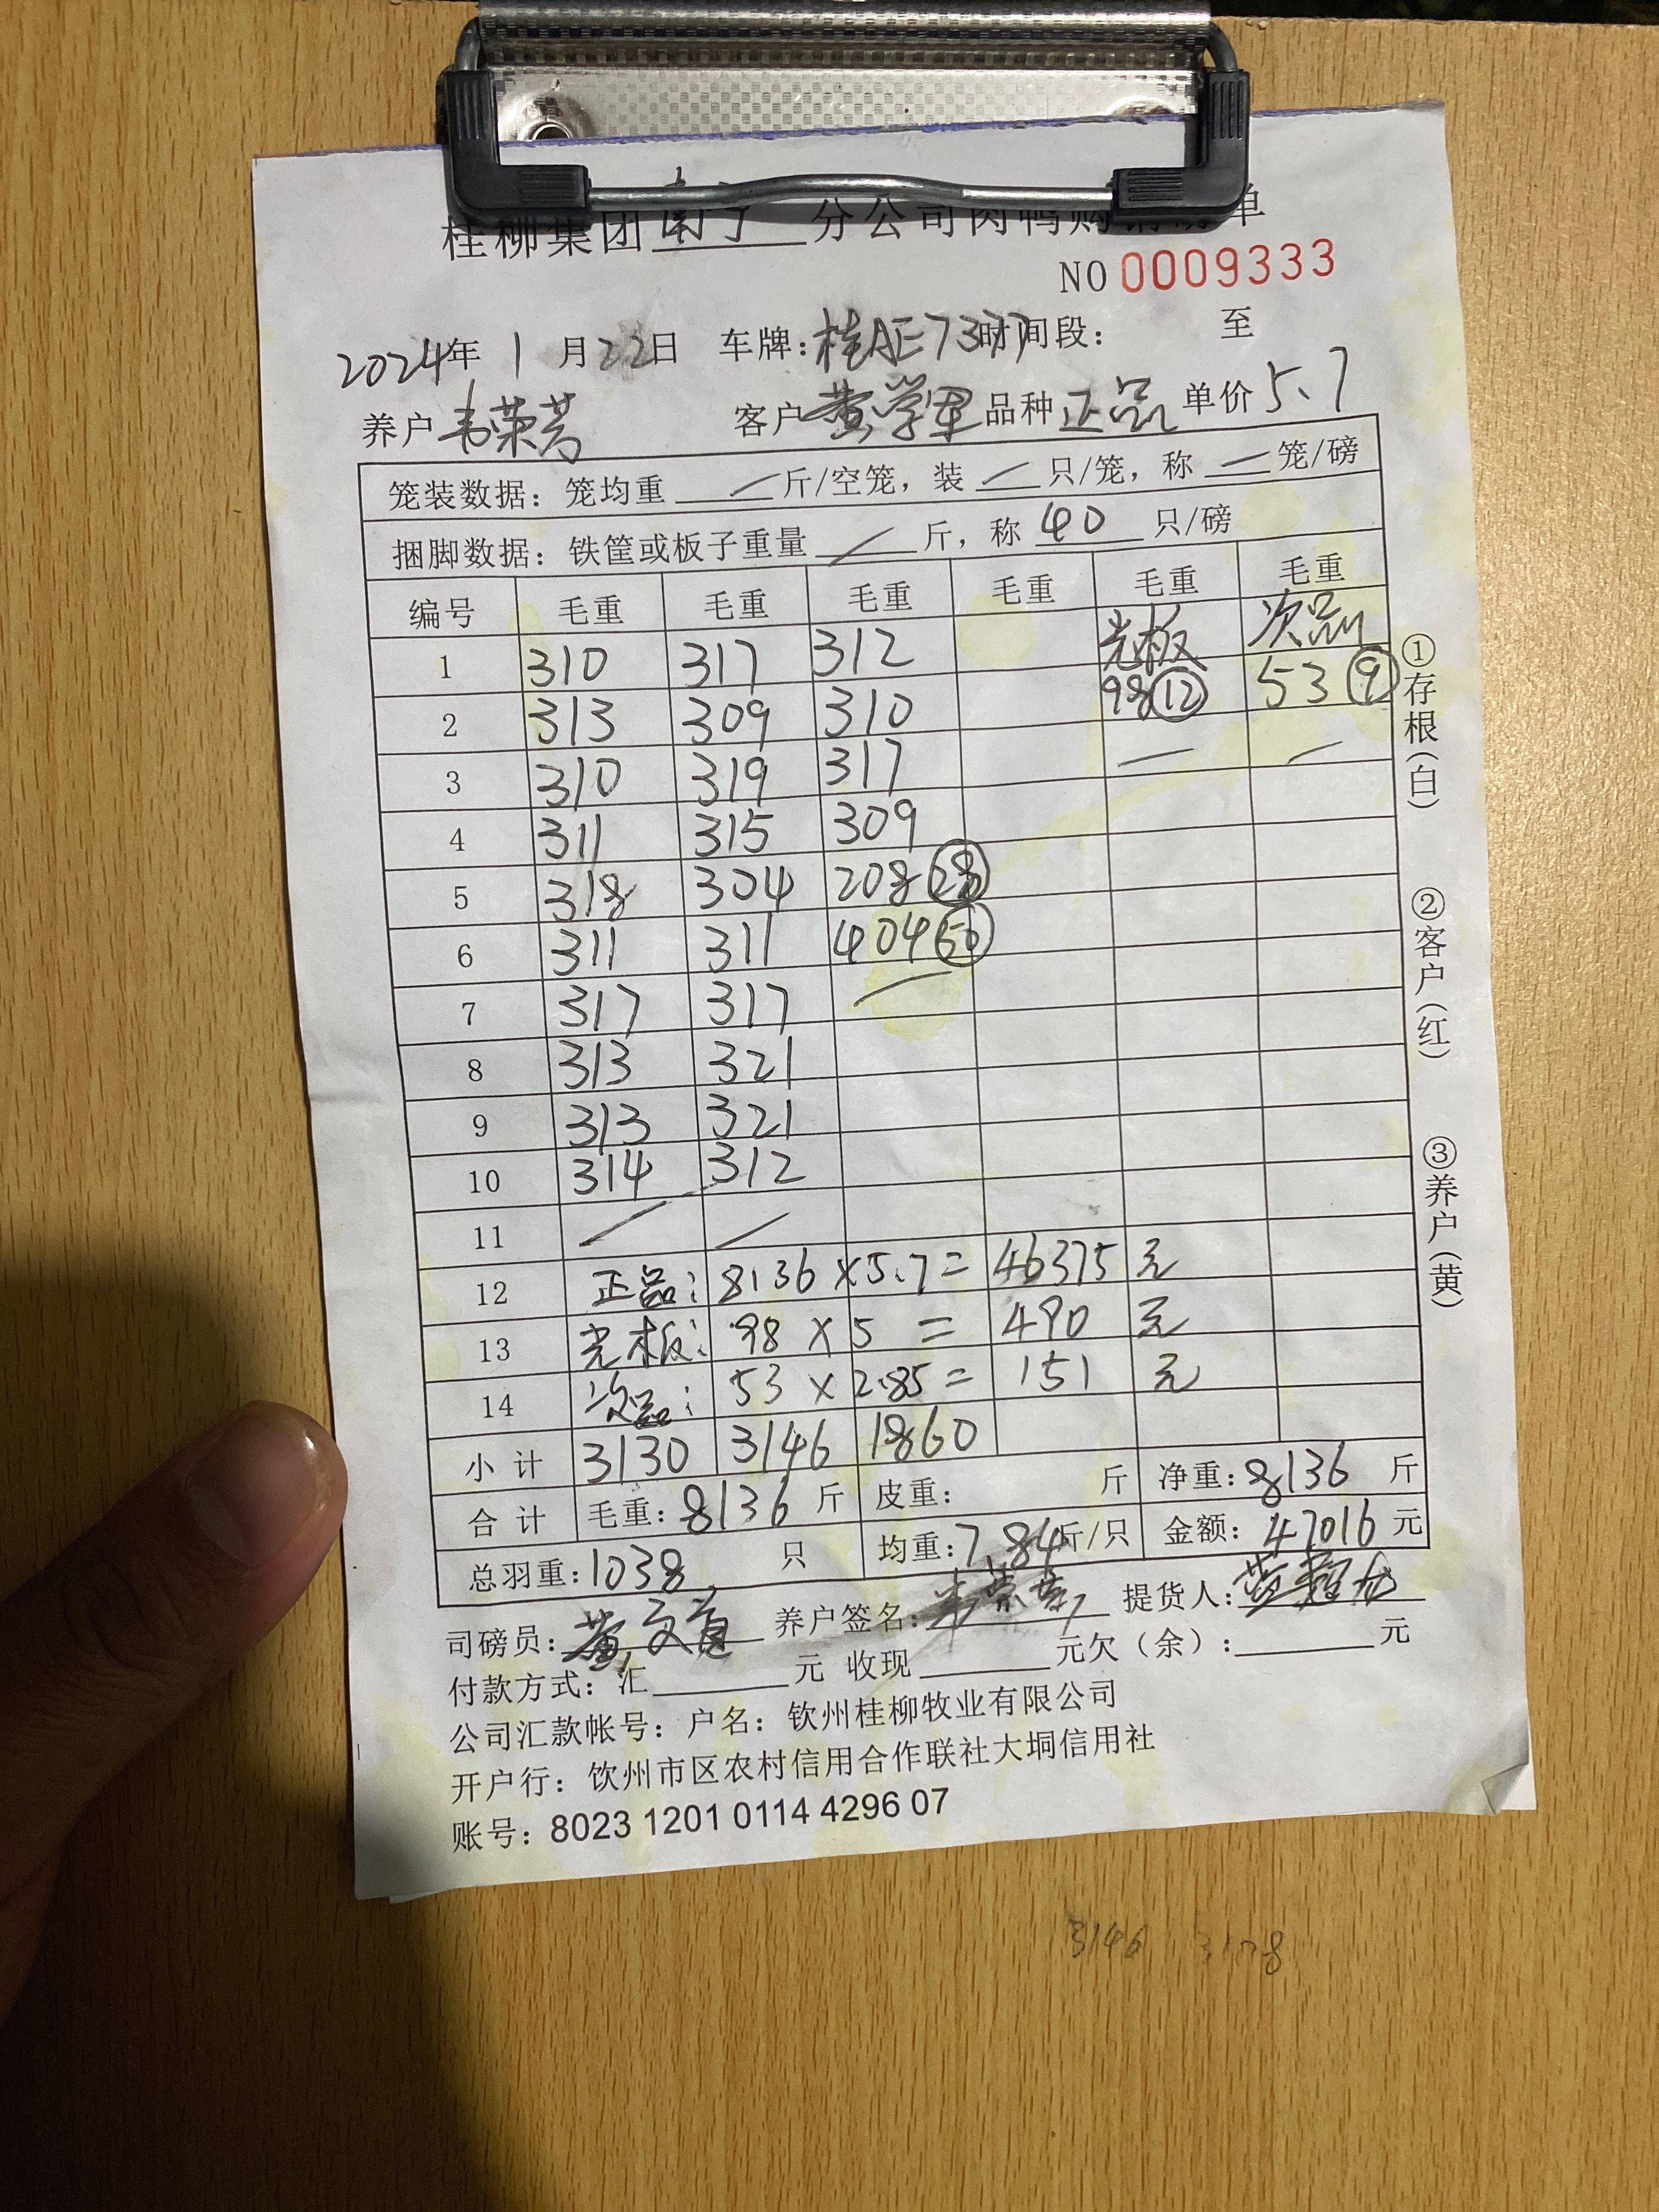 桂柳集团 南宁 分公司肉鸭购销磅单
NO 0009333
2024年 1 月 22日 车牌: 桂AE7377 时间段: 至
养户 韦荣芳 客户 黄学军 品种 正品 单价 5.7
笼装数据: 笼均重 / 斤/空笼, 装 / 只/笼, 称 / 笼/磅
捆脚数据: 铁筐或板子重量 / 斤, 称 40 只/磅
编号 毛重 毛重 毛重 毛重 毛重 毛重
1 310 317 312 光板 次品
2 313 309 310 98 ⑫ 53 ⑨
3 310 319 317 — —
4 311 315 309
5 318 304 208 ㉘
6 311 311 404 ㊿
7 317 317 /
8 313 321
9 313 321
10 314 312
11 / /
12 正品: 8136 × 5.7 = 46375 元
13 光板: 98 × 5 = 490 元
14 次品: 53 × 2.85 = 151 元
小计 3130 3146 1860
合计 毛重: 8136 斤 皮重: 斤 净重: 8136 斤
总羽重: 1038 只 均重: 7.84 斤/只 金额: 47016 元
司磅员: 养户签名: 提货人:
付款方式: 汇 元 收现 元欠(余): 元
公司汇款帐号: 户名: 钦州桂柳牧业有限公司
开户行: 钦州市区农村信用合作联社大垌信用社
账号: 8023 1201 0114 4296 07
①存根(白) ②客户(红) ③养户(黄)
3146